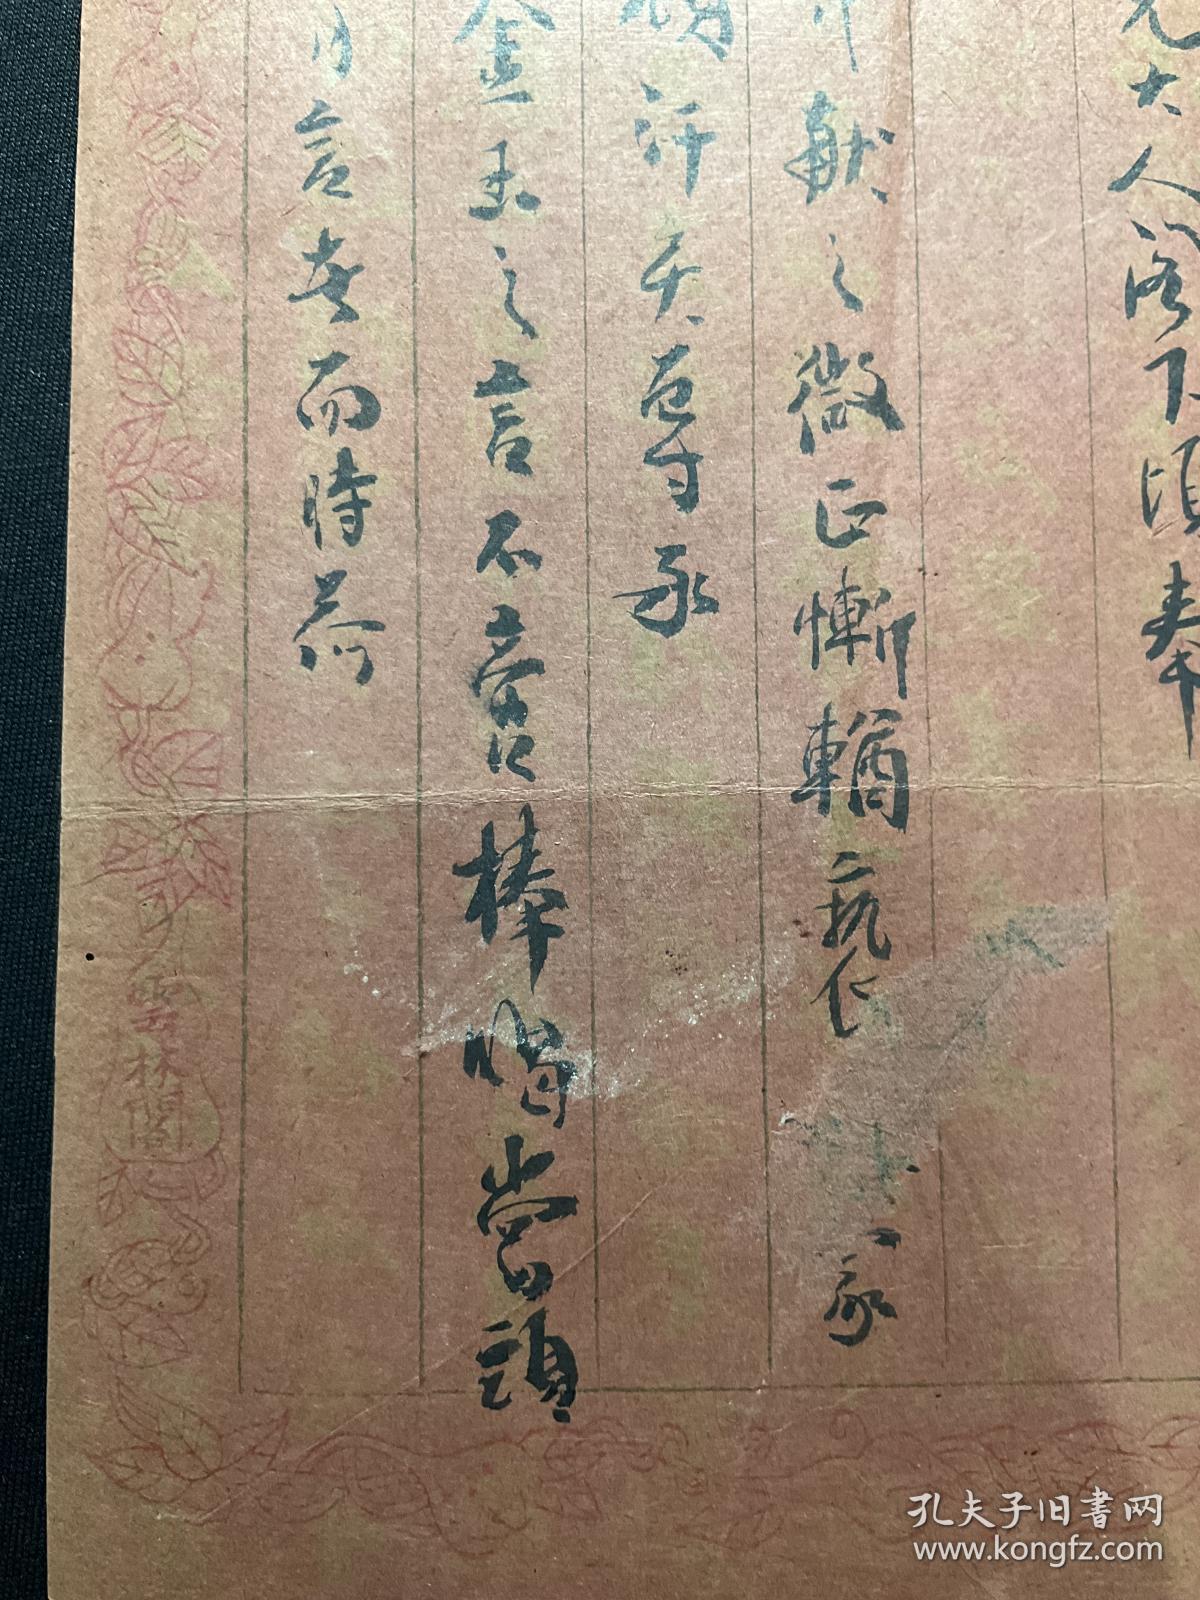 兄大人閣下頃奉
獻之微正慚輶褻仁
汗矣蓴承
金玉之言不啻棒喝當頭
言者而時荷
雲林閣
孔夫子旧书网
www.kongfz.com